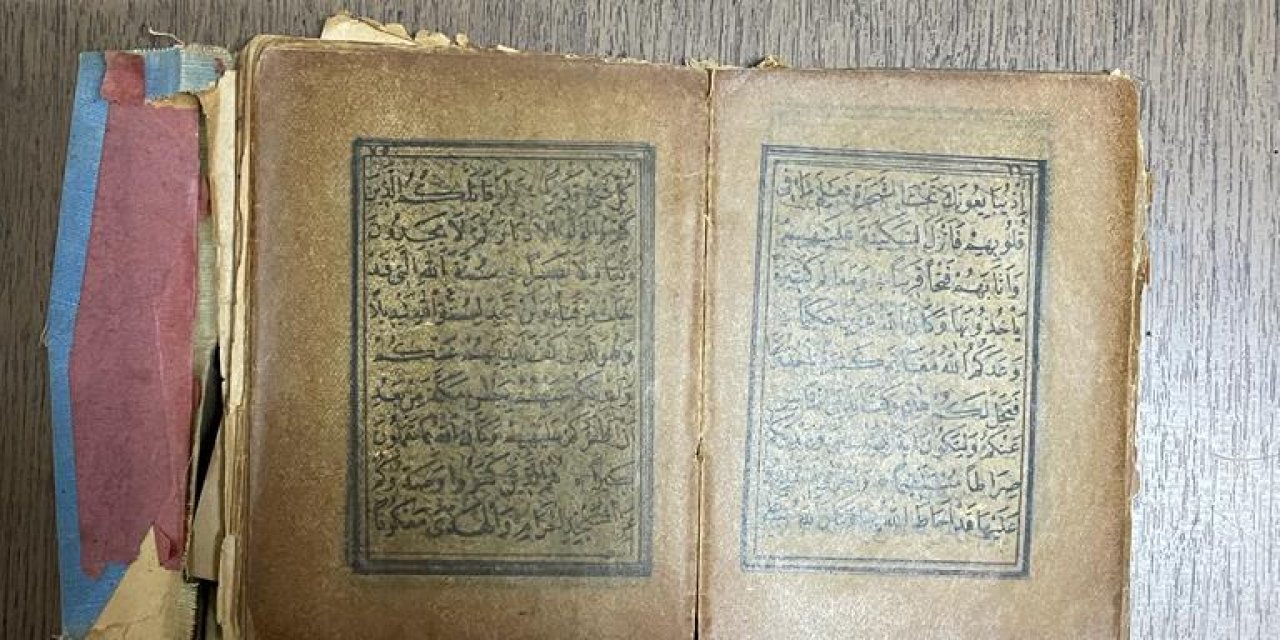 إِذْ يُبَايِعُونَكَ تَحْتَ الشَّجَرَةِ فَعَلِمَ مَا فِي
قُلُوبِهِمْ فَأَنْزَلَ السَّكِينَةَ عَلَيْهِمْ
وَأَثَابَهُمْ فَتْحًا قَرِيبًا وَمَغَانِمَ كَثِيرَةً
يَأْخُذُونَهَا وَكَانَ اللَّهُ عَزِيزًا حَكِيمًا
وَعَدَكُمُ اللَّهُ مَغَانِمَ كَثِيرَةً
فَعَجَّلَ لَكُمْ هَذِهِ وَكَفَّ أَيْدِيَ النَّاسِ
عَنْكُمْ وَلِتَكُونَ آيَةً
صِرَاطًا مُسْتَقِيمًا
عَلَيْهَا قَدْ أَحَاطَ اللَّهُ بِهَا وَكَانَ اللَّهُ
كُلِّ شَيْءٍ قَدِيرًا وَلَوْ قَاتَلَكُمُ الَّذِينَ
كَفَرُوا لَوَلَّوُا الْأَدْبَارَ ثُمَّ لَا يَجِدُونَ
وَلِيًّا وَلَا نَصِيرًا سُنَّةَ اللَّهِ الَّتِي قَدْ
خَلَتْ مِنْ قَبْلُ وَلَنْ تَجِدَ لِسُنَّةِ
وَهُوَ الَّذِي كَفَّ أَيْدِيَهُمْ عَنْكُمْ
وَأَيْدِيَكُمْ عَنْهُمْ بِبَطْنِ مَكَّةَ مِنْ بَعْدِ
أَنْ أَظْفَرَكُمْ عَلَيْهِمْ وَكَانَ اللَّهُ بِمَا تَعْمَلُونَ
بَصِيرًا هُمُ الَّذِينَ كَفَرُوا وَصَدُّوكُمْ
عَنِ الْمَسْجِدِ الْحَرَامِ وَالْهَدْيَ مَعْكُوفًا